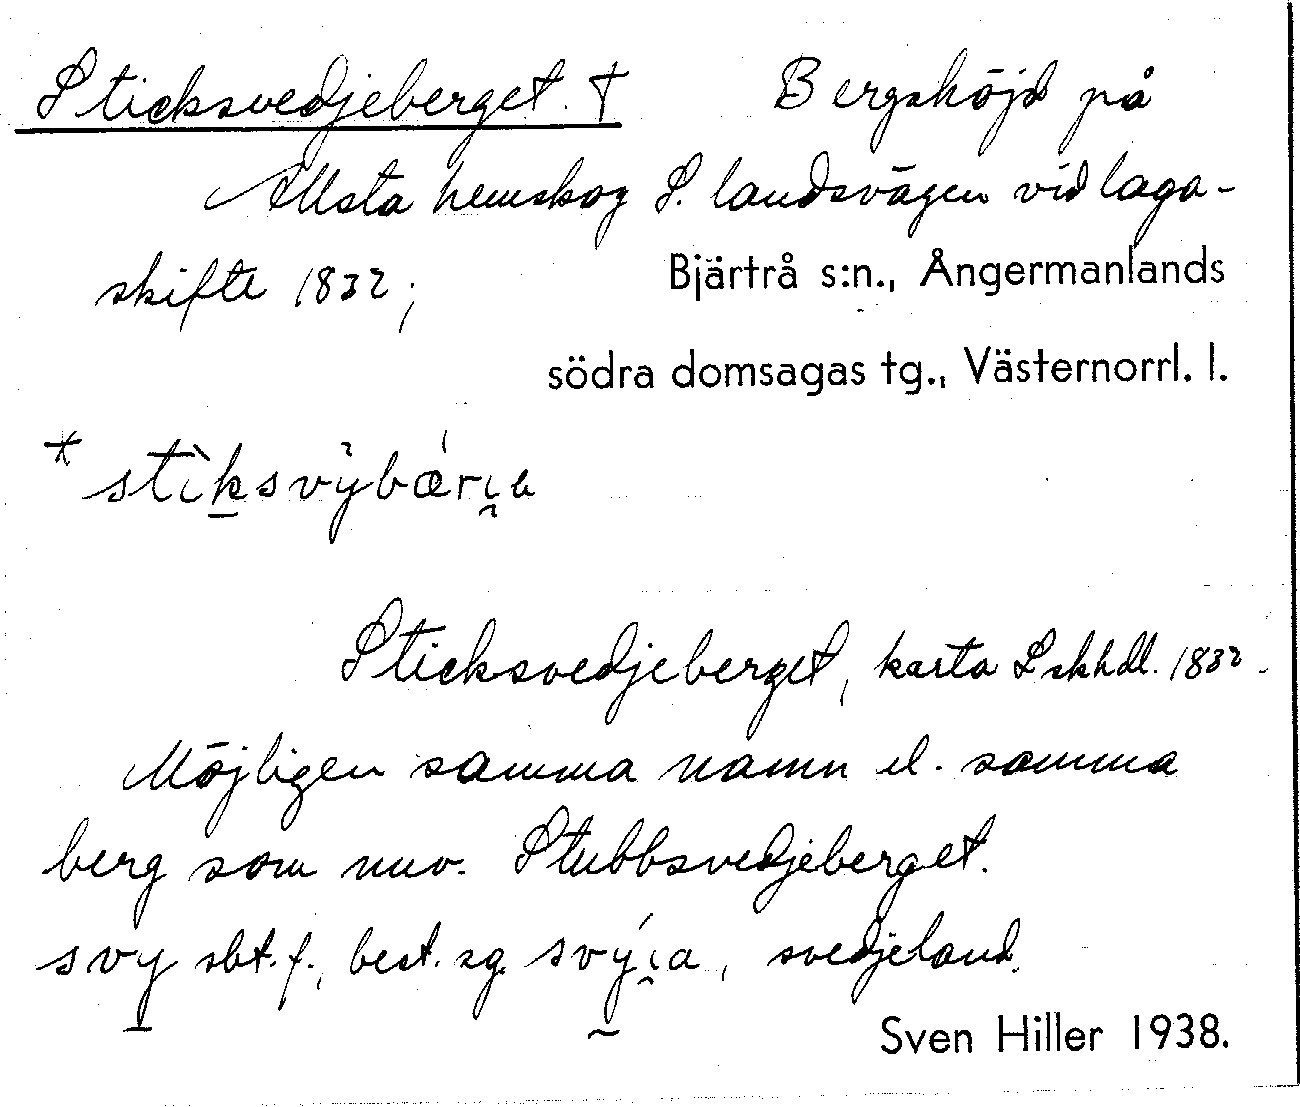 Sticksvedjeberget. † Bergshöjd på
Allsta hemskog S. landsvägen vid laga-
skifte 1832; Bjärtrå s:n., Ångermanlands
södra domsagas tg., Västernorrl. l.
* stìksvy̆bǽri̯a
Sticksvedjeberget, karta Lskhdl. 1832.
Möjligen samma namn el. samma
berg som nuv. Stubbsvedjeberget.
svy̱ sbt. f., best. sg. svý̰i̯a, svedjeland.
Sven Hiller 1938.